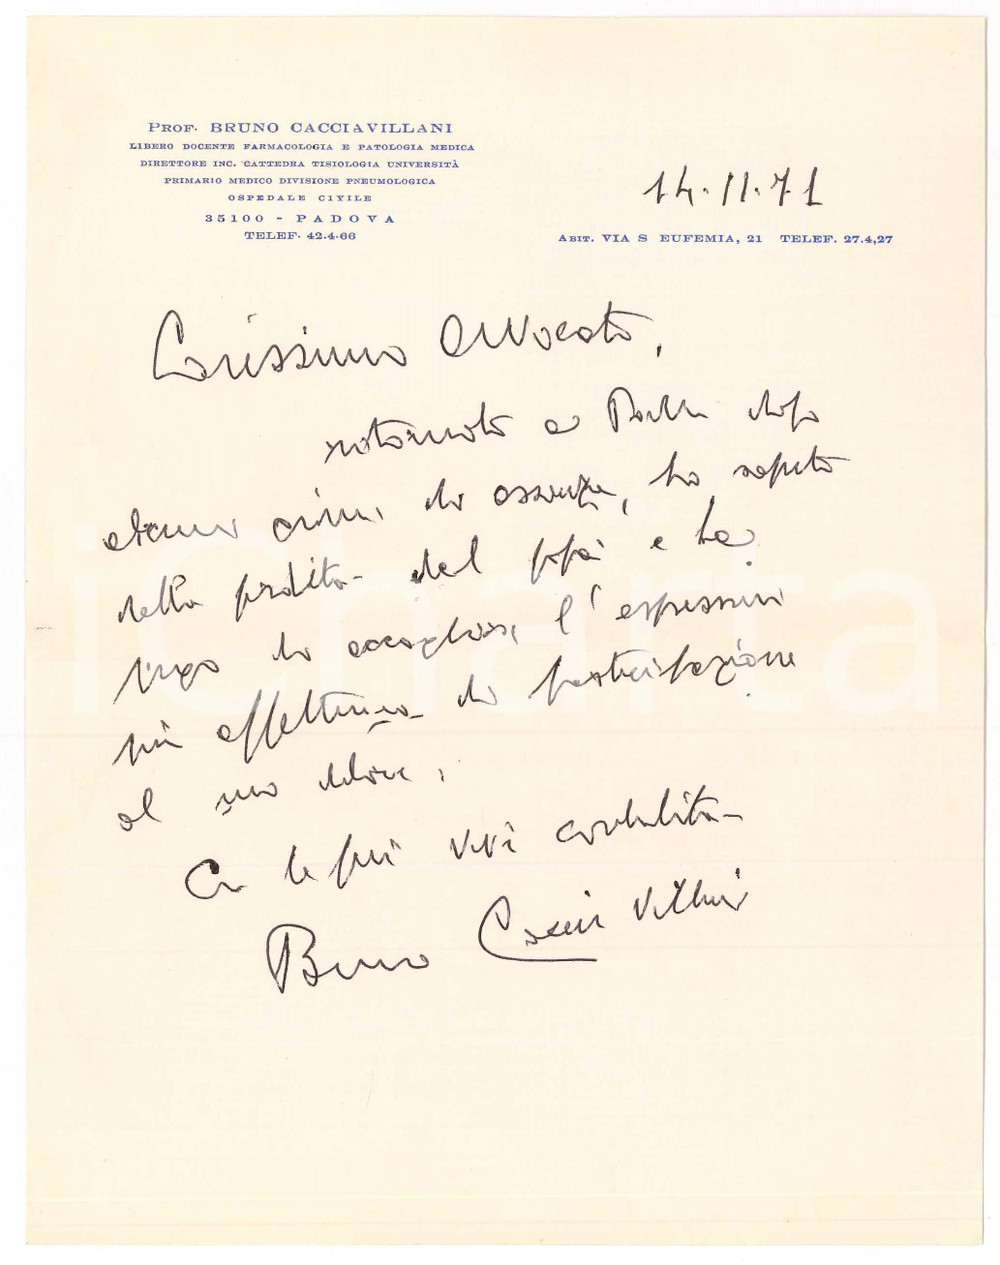 PROF. BRUNO CACCIAVILLANI
LIBERO DOCENTE FARMACOLOGIA E PATOLOGIA MEDICA
DIRETTORE INC. CATTEDRA TISIOLOGIA UNIVERSITÀ
PRIMARIO MEDICO DIVISIONE PNEUMOLOGICA
OSPEDALE CIVILE
35100 - PADOVA
TELEF. 42.4.66
14.11.71
ABIT. VIA S EUFEMIA, 21 TELEF. 27.4,27
Carissimo Avvocato,
ritornato a dopo
alcuni giorni di assenza, ho saputo
della perdita del papà e La
prego di accogliere l'espressione
più affettuosa di partecipazione
al suo dolore.
Con le più vive cordialità
Bruno Cacciavillani
iCharta